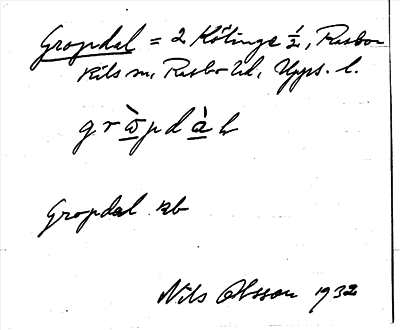 Gropdal = 2 Kölinge ½, Rasbo-
kils sn, Rasbo hd, Upps. l.
grò̱pdà̱l
Gropdal jb
Nils Olsson 1932